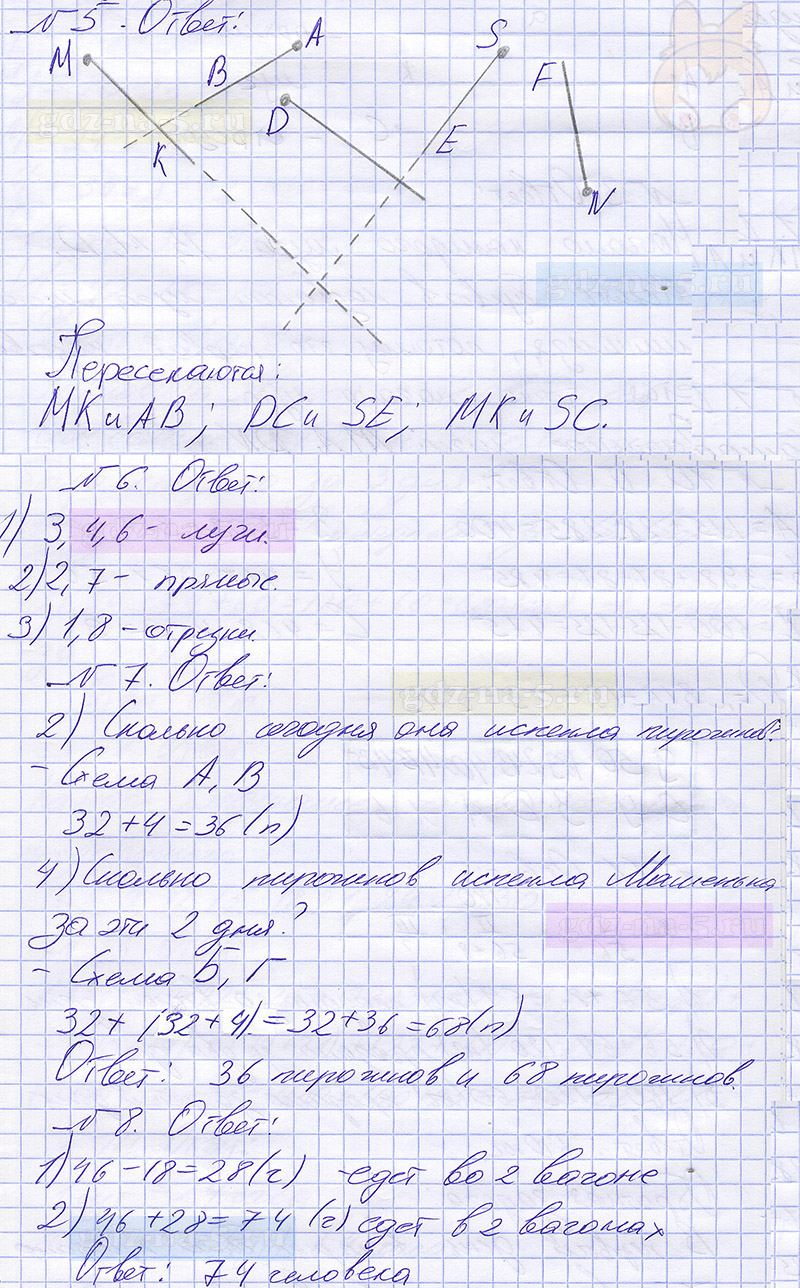 № 5. Ответ:
M B A D K S E F N
Пересекаются:
MK и AB; DC и SE; MK и SC.
№ 6. Ответ:
1) 3, 4, 6 - лучи.
2) 2, 7 - прямые.
3) 1, 8 - отрезки.
№ 7. Ответ:
2) Сколько сегодня она испекла пирожков?
- Схема А, В
32 + 4 = 36 (п)
4) Сколько пирожков испекла Машенька
за эти 2 дня?
- Схема Б, Г
32 + (32 + 4) = 32 + 36 = 68 (п)
Ответ: 36 пирожков и 68 пирожков.
№ 8. Ответ:
1) 46 - 18 = 28 (ч) - едет во 2 вагоне
2) 46 + 28 = 74 (ч) едет в 2 вагонах
Ответ: 74 человека